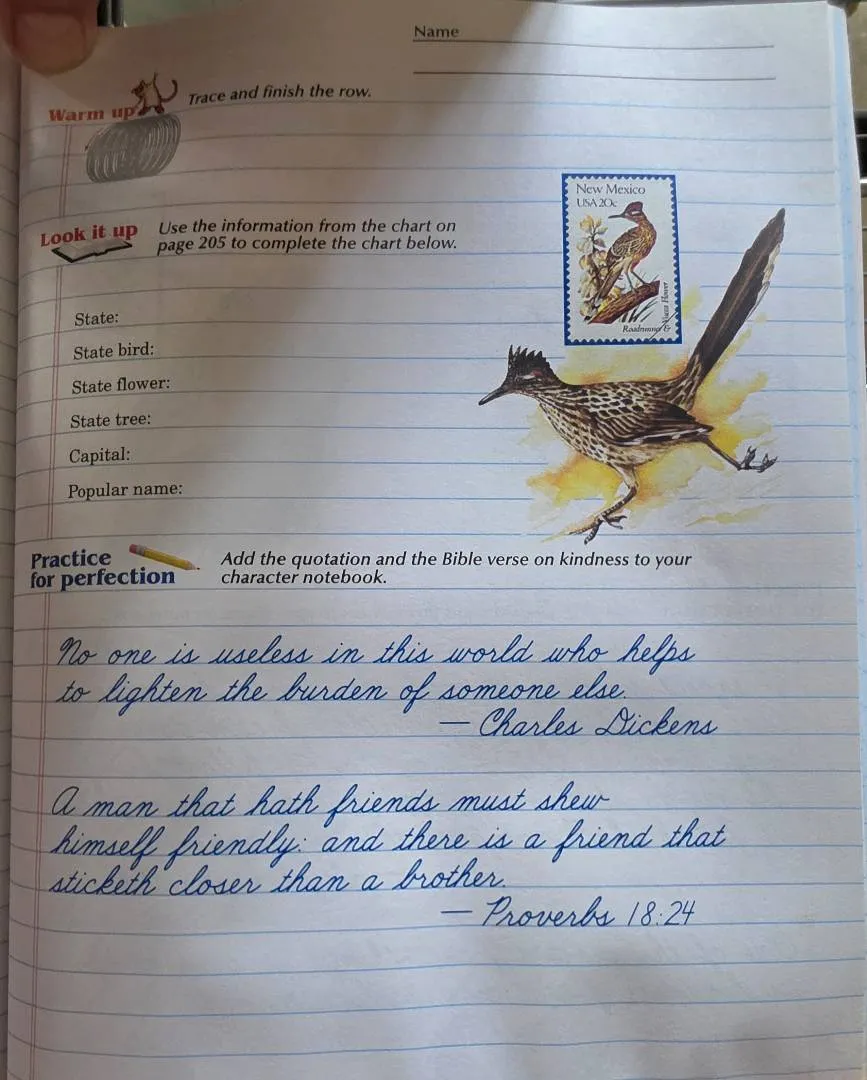 Name
Warm up
Trace and finish the row.
New Mexico
USA 20c
Roadrunner &
Yucca Flower
Look it up
Use the information from the chart on
page 205 to complete the chart below.
State:
State bird:
State flower:
State tree:
Capital:
Popular name:
Practice
for perfection
Add the quotation and the Bible verse on kindness to your
character notebook.
No one is useless in this world who helps
to lighten the burden of someone else.
— Charles Dickens
A man that hath friends must shew
himself friendly: and there is a friend that
sticketh closer than a brother.
— Proverbs 18:24